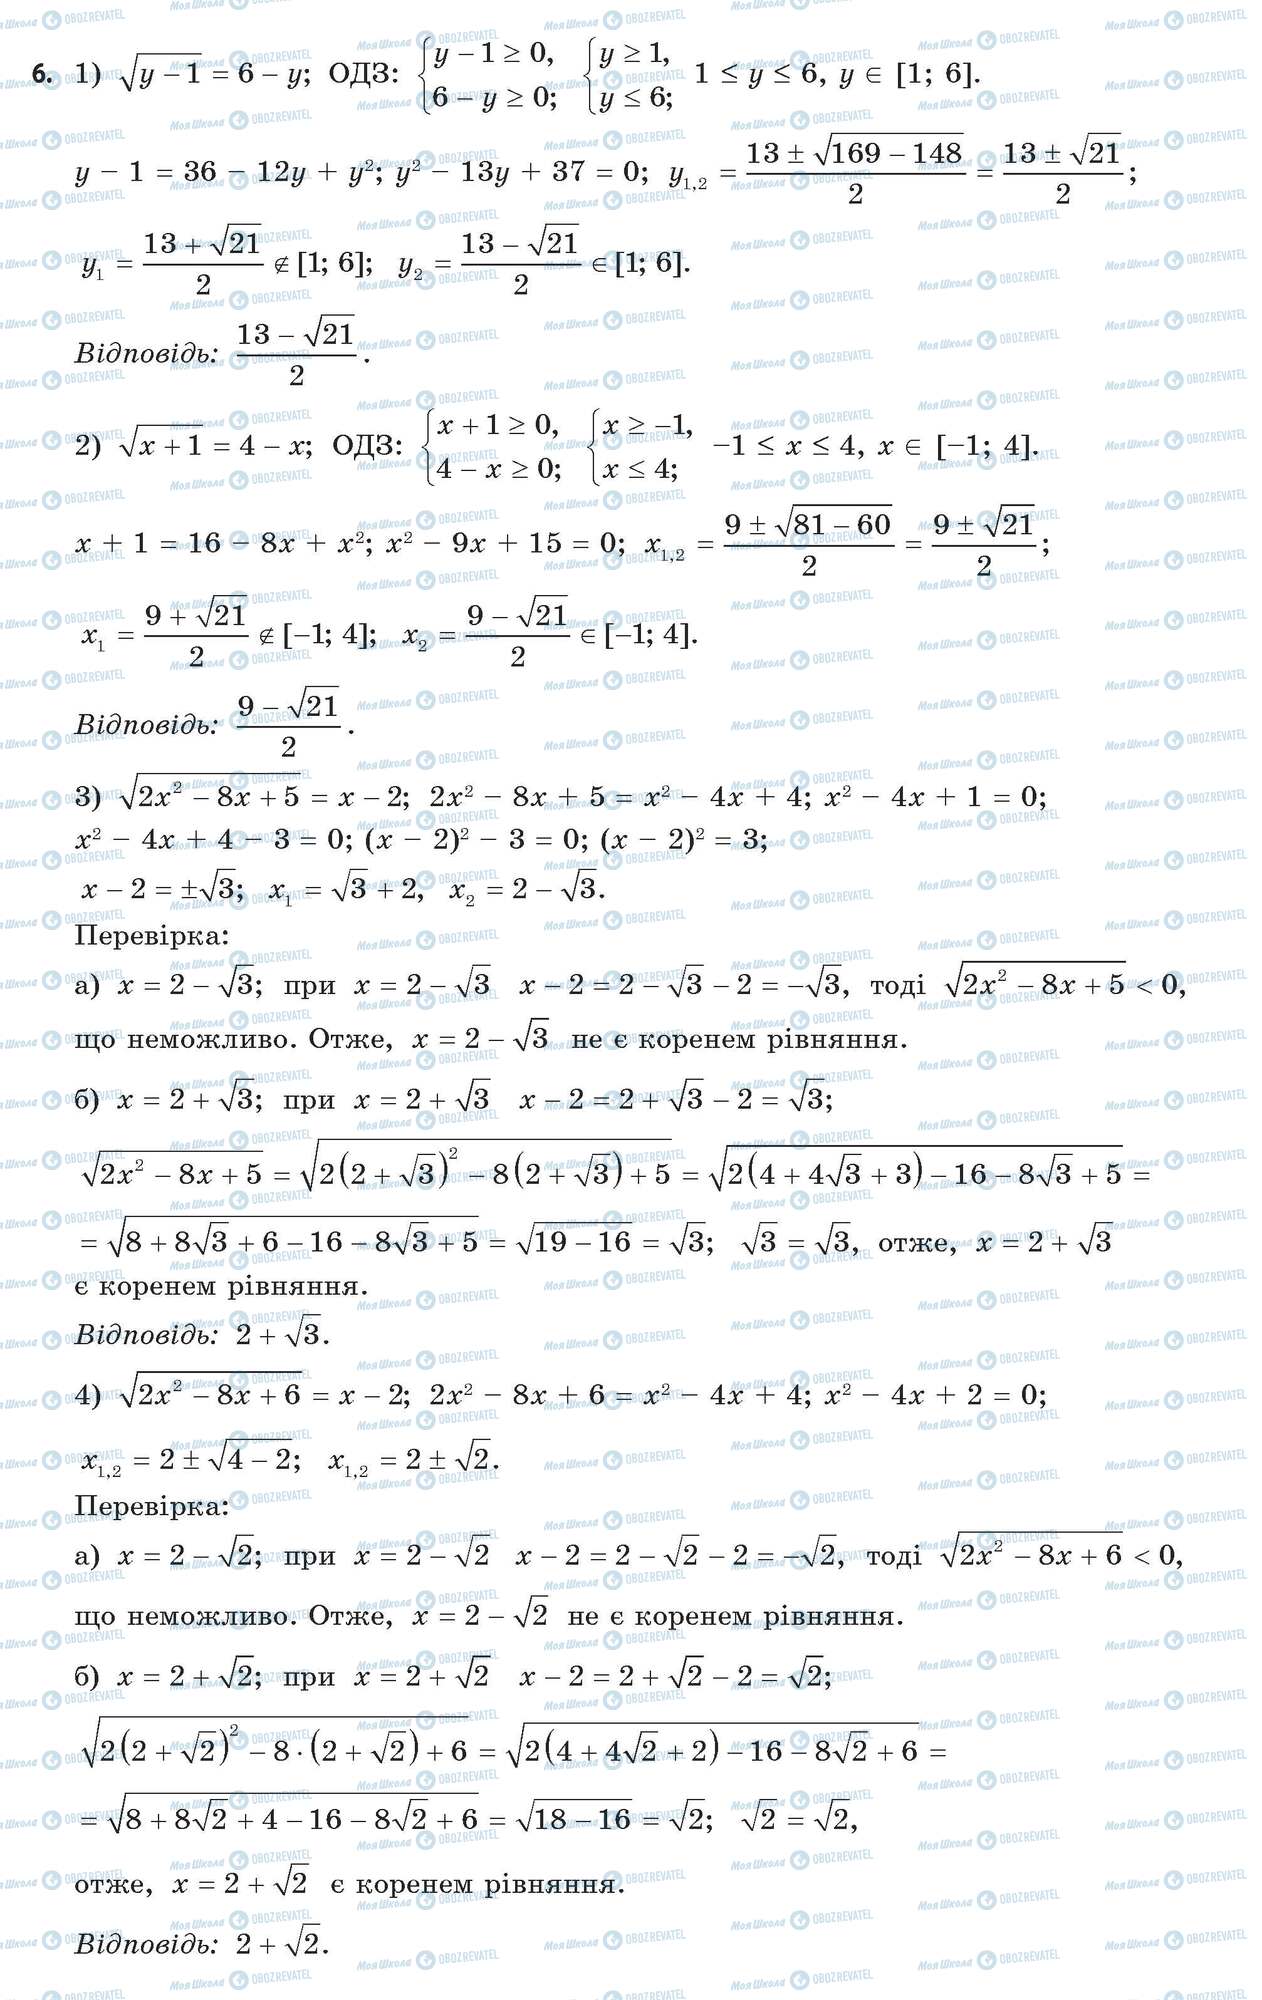 6. 1) √(y − 1) = 6 − y; ОДЗ: {y − 1 ≥ 0, 6 − y ≥ 0; {y ≥ 1, y ≤ 6; 1 ≤ y ≤ 6, y ∈ [1; 6].
y − 1 = 36 − 12y + y²; y² − 13y + 37 = 0; y₁,₂ = (13 ± √(169 − 148))/2 = (13 ± √21)/2;
y₁ = (13 + √21)/2 ∉ [1; 6]; y₂ = (13 − √21)/2 ∈ [1; 6].
Відповідь: (13 − √21)/2.
2) √(x + 1) = 4 − x; ОДЗ: {x + 1 ≥ 0, 4 − x ≥ 0; {x ≥ −1, x ≤ 4; −1 ≤ x ≤ 4, x ∈ [−1; 4].
x + 1 = 16 − 8x + x²; x² − 9x + 15 = 0; x₁,₂ = (9 ± √(81 − 60))/2 = (9 ± √21)/2;
x₁ = (9 + √21)/2 ∉ [−1; 4]; x₂ = (9 − √21)/2 ∈ [−1; 4].
Відповідь: (9 − √21)/2.
3) √(2x² − 8x + 5) = x − 2; 2x² − 8x + 5 = x² − 4x + 4; x² − 4x + 1 = 0;
x² − 4x + 4 − 3 = 0; (x − 2)² − 3 = 0; (x − 2)² = 3;
x − 2 = ±√3; x₁ = √3 + 2, x₂ = 2 − √3.
Перевірка:
а) x = 2 − √3; при x = 2 − √3 x − 2 = 2 − √3 − 2 = −√3, тоді √(2x² − 8x + 5) < 0,
що неможливо. Отже, x = 2 − √3 не є коренем рівняння.
б) x = 2 + √3; при x = 2 + √3 x − 2 = 2 + √3 − 2 = √3;
√(2x² − 8x + 5) = √(2(2 + √3)² − 8(2 + √3) + 5) = √(2(4 + 4√3 + 3) − 16 − 8√3 + 5) =
= √(8 + 8√3 + 6 − 16 − 8√3 + 5) = √(19 − 16) = √3; √3 = √3, отже, x = 2 + √3
є коренем рівняння.
Відповідь: 2 + √3.
4) √(2x² − 8x + 6) = x − 2; 2x² − 8x + 6 = x² − 4x + 4; x² − 4x + 2 = 0;
x₁,₂ = 2 ± √(4 − 2); x₁,₂ = 2 ± √2.
Перевірка:
а) x = 2 − √2; при x = 2 − √2 x − 2 = 2 − √2 − 2 = −√2, тоді √(2x² − 8x + 6) < 0,
що неможливо. Отже, x = 2 − √2 не є коренем рівняння.
б) x = 2 + √2; при x = 2 + √2 x − 2 = 2 + √2 − 2 = √2;
√(2(2 + √2)² − 8 · (2 + √2) + 6) = √(2(4 + 4√2 + 2) − 16 − 8√2 + 6) =
= √(8 + 8√2 + 4 − 16 − 8√2 + 6) = √(18 − 16) = √2; √2 = √2,
отже, x = 2 + √2 є коренем рівняння.
Відповідь: 2 + √2.